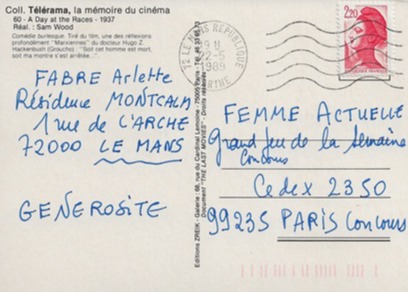 Coll. Télérama, la mémoire du cinéma
60 - A Day at the Races - 1937
Réal. : Sam Wood
Comédie burlesque. Tiré du film, une des réflexions
profondément "Marxiennes" du docteur Hugo Z.
Hackenbush (Groucho) : "Soit cet homme est mort,
soit ma montre s'est arrêtée..."
FABRE Arlette
Résidence MONTCALM
1 rue de L'ARCHE
72000 LE MANS
GENEROSITE
Editions ZREIK - Galerie : 68, rue du Cardinal Lemoine - 75005 Paris
Document "THE LAST MOVIES" - Droits réservés
72 LE MANS REPUBLIQUE
1989
SARTHE
2,20
FEMME ACTUELLE
Grand jeu de la semaine
Concours
Cedex 2350
99235 PARIS Concours